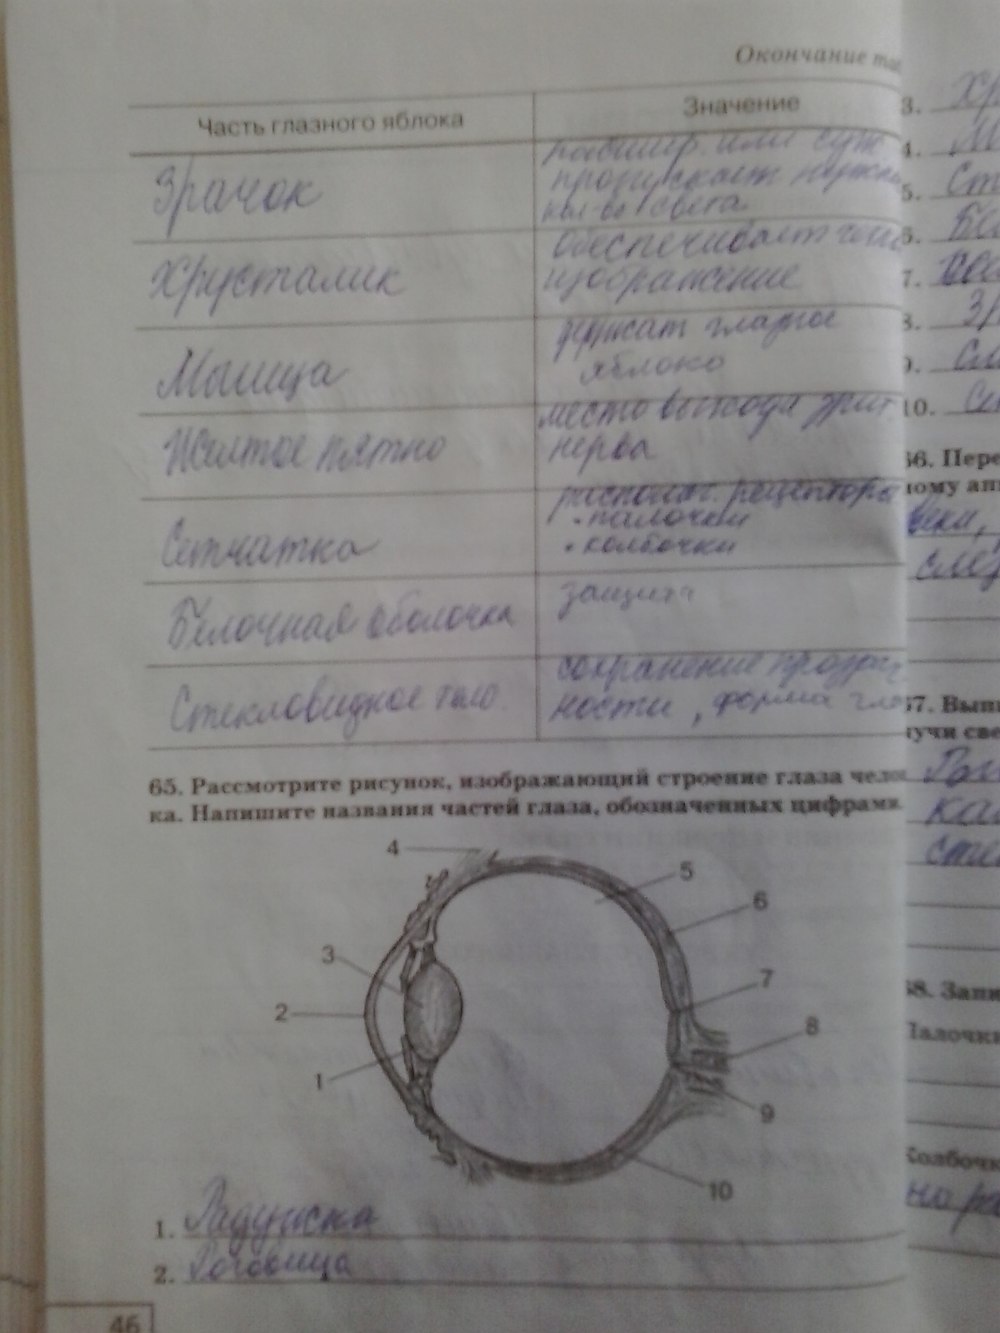 Окончание таб
Часть глазного яблока
Значение
Зрачок
расшир. или суж.
пропускает нужное
кол-во света
Хрусталик
обеспечивает
изображение
Мышца
держат глазное
яблоко
Желтое пятно
место выхода зрит.
нерва
Сетчатка
располаг. рецепторы
• палочки
• колбочки
Белочная оболочка
защита
Стекловидное тело.
сохранение прозрач
ности, форма гла
65. Рассмотрите рисунок, изображающий строение глаза челов
ка. Напишите названия частей глаза, обозначенных цифрами.
4
5
6
3
7
2
8
1
9
10
1. Радужка
2. Роговица
46
3. Хр
4.
5. Ст
6. Бел
7.
8. Зр
9.
10.
66. Пере
ному апп
веки,
слез
67. Выпи
лучи све
Рог
ка
сте
68. Запи
Палочки
Колбочк